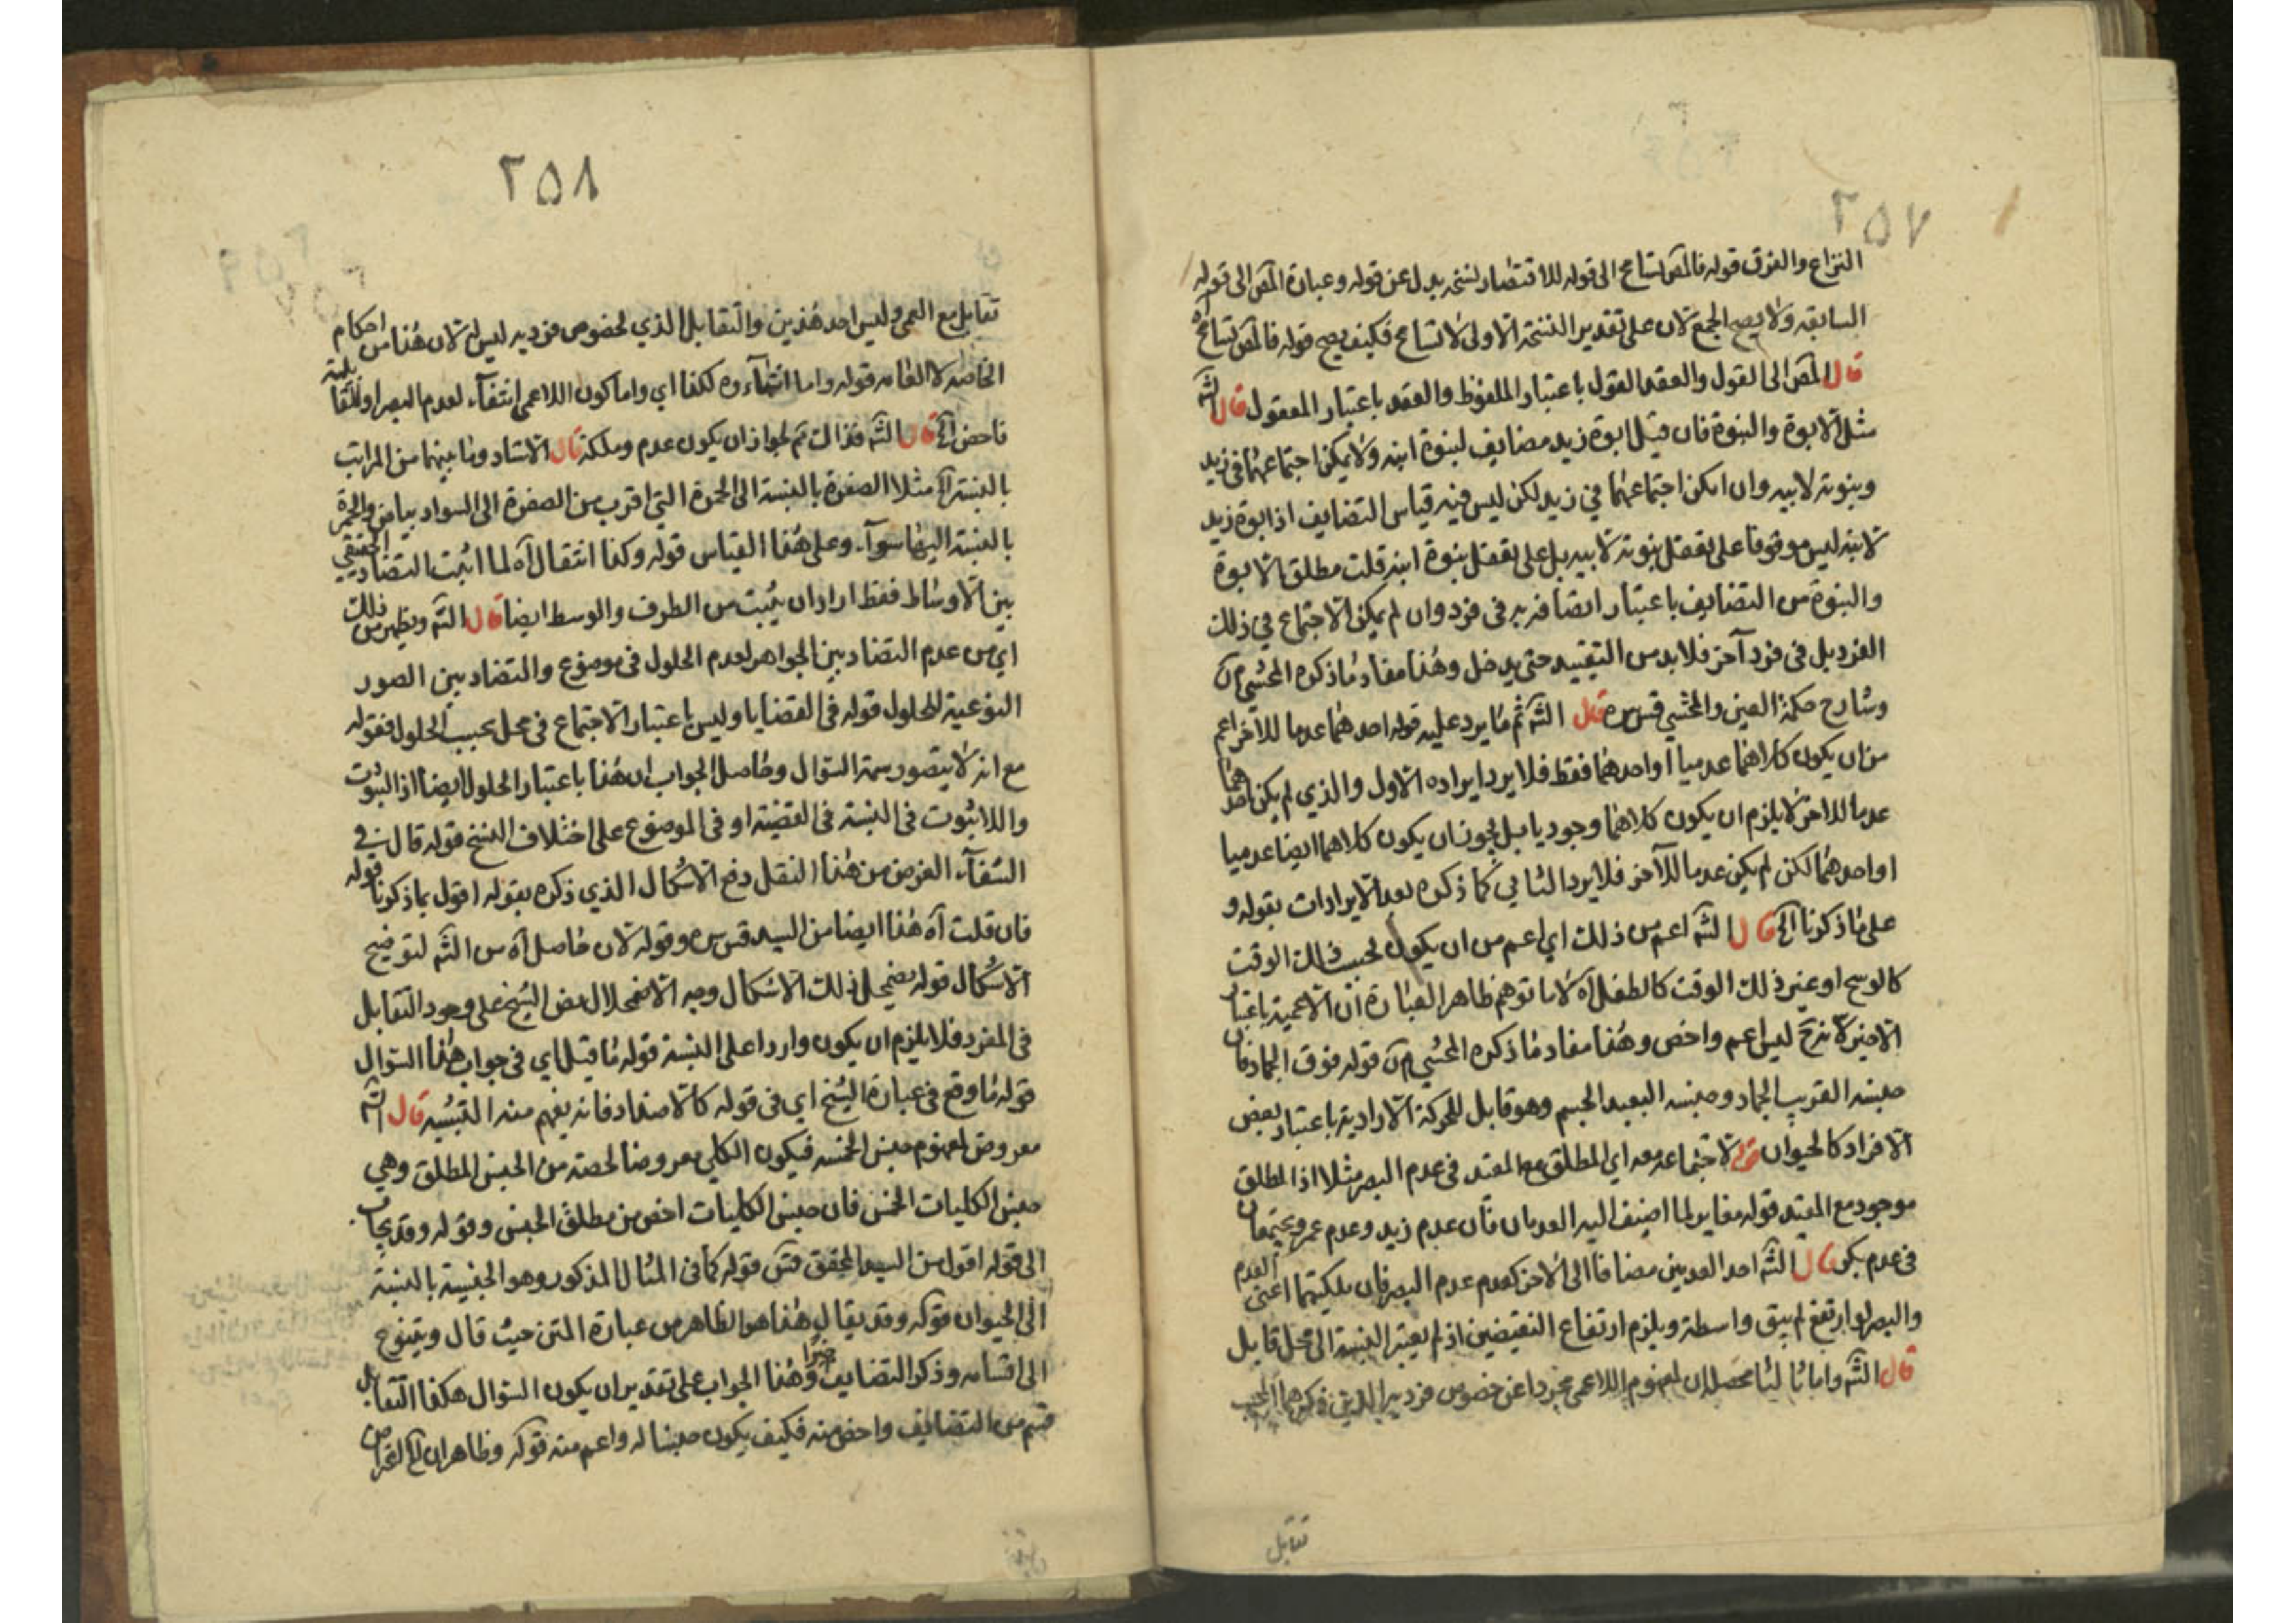 ٢٥٧
النزاع والفرق قوله فالمص تسامح الى قوله للاقتضاء نسخه بدل عن قوله وعبارة المص الى قوله
السابقه ولا يصح الجمع لان على تقدير النسخة الاولى لا تسامح فكيف يصح قوله فالمص تسامح آه
قال المص الى القول والعقد القول باعتبار الملفوظ والعقد باعتبار المعقول قال الشه
مثل الابوة والبنوة فان قيل ابوة زيد مضايف لبنوة ابنه ولا يمكن اجتماعهما فى زيد
وبنوته لابيه وان امكن اجتماعهما في زيد لكن ليس فيه قياس التضايف اذ ابوة زيد
لابنه ليس موقوفا على تعقل بنوته لابيه بل على تعقل بنوة ابنه قلت مطلق الابوة
والبنوة من التضايف باعتبار اتضا فربه فى فرد وان لم يمكن الاجتماع في ذلك
الفرد بل فى فرد آخر فلا بد من التقييد حتى يدخل وهذا مفاد ما ذكره المحشي
وشارح حكمة العين والمحشي قس سره قال الشه ثم ما يرد عليه قوله احدهما عدما للاخر اعم
من ان يكون كلاهما عدميا او احدهما فقط فلا يرد ايراده الاول والذي لم يكن احدهما
عدما للاخر لا يلزم ان يكون كلاهما وجوديا بل يجوز ان يكون كلاهما ايضا عدميا
او احدهما لكن لم يكن عدما للآخر فلا يرد الثاني كما ذكره بعد الايرادات بقوله و
على ما ذكرنا الخ قال الشه اعم من ذلك اي اعم من ان يكون بحسب ذلك الوقت
كالوسح او غير ذلك الوقت كالطفل آه لا ما توهم ظاهر العبارة ان الاعمية باعتبار
الاخير لا نرح ليس اعم واخص وهذا مفاد ما ذكره المحشي قوله فوق الجماد فان
جنسه القريب الجماد وجنسه البعيد الجسم وهو قابل للحركة الارادية باعتبار بعض
الافراد كالحيوان قوله لاجتماعه معه اي المطلق مع المقيد فى عدم البصر مثلا اذ المطلق
موجود مع المقيد قوله مغاير لما اضيف اليه العدمان فان عدم زيد وعدم عمرو يجتمعان
فى عدم بكر قال الشه احد العدمين مضافا الى الاخر كعدم عدم البصر فان ملكيتهما اعنى العدم
والبصر لو ارتفع لم يبق واسطة ويلزم ارتفاع النقيضين اذ لم يعتبر النسبة الى محل قابل
قال الشه واما ثالثا محصله ان لمفهوم اللاعمى مجردا عن خصوص فرديه الذين ذكرهما المجيب
تقابل
٢٥٨
تقابل مع العمى وليس احد هذين والتقابل الذي لخصوص فرديه ليس له لان هذا من احكام
الخاصه لا العامه قوله واما انتفاءه هكذا اي واما كون اللاعمى انتفآء لعدم البصر او للقابلية
فاحض الخ قال الشه فذالك ثم لجواز ان يكون عدم وملكة قال الاستاد وما بينهما من المراتب
بالنسبة الخ مثلا الصفرة بالنسبة الى الحمرة التي اقرب من الصفرة الى السواد بياض والحمرة
بالنسبة اليها سوآء وعلى هذا القياس قوله وكذا انتقال آه لما اثبت التضاد الحقيقي
بين الاوساط فقط اراد ان يثبت من الطرف والوسط ايضا قال الشه ويظهر من ذلك
اي من عدم التضاد بين الجواهر لعدم الحلول فى موضوع والتضاد بين الصور
النوعية للحلول قوله فى القضايا وليس باعتبار الاجتماع فى محل بحسب الحلول فقوله
مع انه لا يتصور سمة السؤال وحاصل الجواب ان هذا باعتبار الحلول ايضا اذ الثبوت
واللاثبوت فى النسبة فى القضية او فى الموضوع على اختلاف النسخ قوله قال فى
الشفآء الغرض من هذا النقل دفع الاشكال الذي ذكره بقوله اقول بما ذكرنا قوله
فان قلت آه هذا ايضا من السيد قس سره وقوله لان حاصل آه من الشه لتوضيح
الاشكال قوله يضمحل ذلك الاشكال وجه الاضمحلال نص الشيخ على وجود التقابل
فى المفرد فلا يلزم ان يكون واردا على النسبة قوله ما قيل اي فى جواب هذا السؤال
قوله ما وقع فى عبارة الشيخ اي فى قوله كالاضداد فانه يفهم منه التشبيه قال الشه
معروض لمفهوم جنس الخمسه فيكون الكلي معروضا لحصة من الجنس المطلق وهي
جنس الكليات الخمس فان جنس الكليات اخص من مطلق الجنس وقوله وقد يجاب
الى قوله اقول من السيد المحقق قس قوله كما فى المثال المذكور وهو الجنسية بالنسبة
الى الحيوان قوله وقد يقال هذا هو الظاهر من عبارة المتن حيث قال ويتنوع
الى اقسامه وذكر التضايف وهذا الجواب على تقدير ان يكون السؤال هكذا التقابل
قسم من التضايف واخص منه فكيف يكون جنسا له واعم منه قوله وظاهر ان الخ الغرض